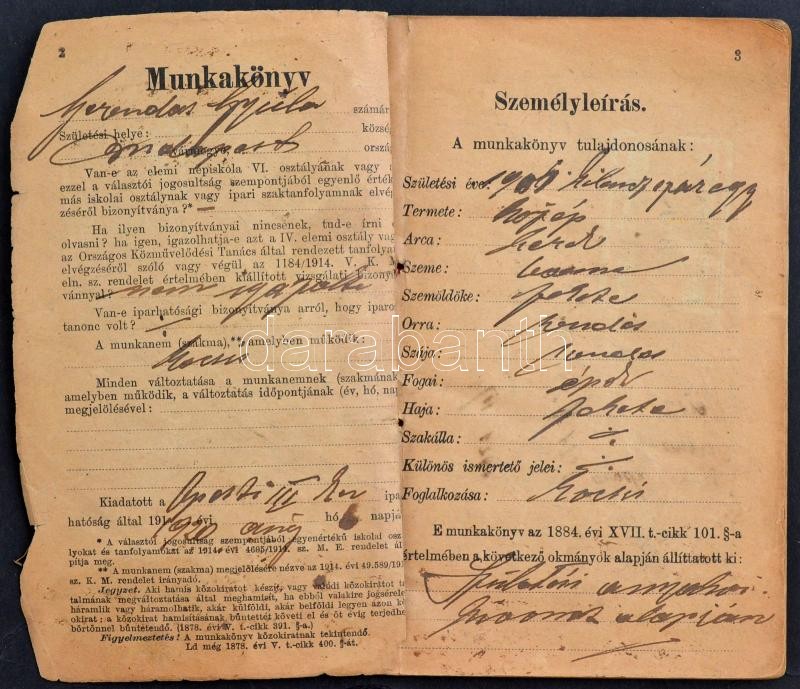 2
Munkakönyv
Gyula számár
Születési helye: község
vármegye: orszá
Van-e az elemi népiskola VI. osztályának vagy a
ezzel a választói jogosultság szempontjából egyenlő érték
más iskolai osztálynak vagy ipari szaktanfolyamnak elvé
zéséről bizonyítványa?* —
Ha ilyen bizonyítványai nincsenek, tud-e írni
olvasni? ha igen, igazolhatja-e azt a IV. elemi osztály vag
az Országos Közművelődési Tanács által rendezett tanfolya
elvégzéséről szóló vagy végül az 1184/1914. V. K. M
eln. sz. rendelet értelmében kiállított vizsgálati bizony
vánnyal? nem igazolta
Van-e iparhatósági bizonyítványa arról, hogy iparo
tanonc volt?
A munkanem (szakma),** amelyben működik:
Kocsis
Minden változtatása a munkanemnek (szakmának
amelyben működik, a változtatás időpontjának (év, hó, na
megjelölésével:
Kiadatott a Bpesti III Ker ipa
hatóság által 191 évi aug hó 6 napjá
* A választói jogosultság szempontjából egyenértékű iskolai osz
lyokat és tanfolyamokat az 1914. évi 4685/1914. sz. M. E. rendelet ál
pítja meg.
** A munkanem (szakma) megjelölésére nézve az 1914. évi 49.589/191
sz. K. M. rendelet irányadó.
Jegyzet. Aki hamis közokiratot készít, vagy valódi közokiratot
talmának megváltoztatása által meghamisít, ha ebből valakire jogsérele
háramlik vagy háramolhatik, akár külföldi, akár belföldi legyen azon k
okirat: a közokirat hamisításának bűntettét követi el és öt évig terjedhe
börtönnel büntetendő. (1878. évi V. t.-cikk 391. §-a.)
Figyelmeztetés! A munkakönyv közokiratnak tekintendő.
Ld még 1878. évi V. t.-cikk 400. §-át.
3
Személyleírás.
A munkakönyv tulajdonosának:
Születési éve: 1901 Kilencszázegy
Termete: közép
Arca: kerek
Szeme: barna
Szemöldöke: fekete
Orra: rendes
Szája: rendes
Fogai: épek
Haja: fekete
Szakálla: ./.
Különös ismertető jelei: ./.
Foglalkozása: Kocsis
E munkakönyv az 1884. évi XVII. t.-cikk 101. §-a
értelmében a következő okmányok alapján állíttatott ki:
Születési anyakönyvi
kivonat alapján
darabanth